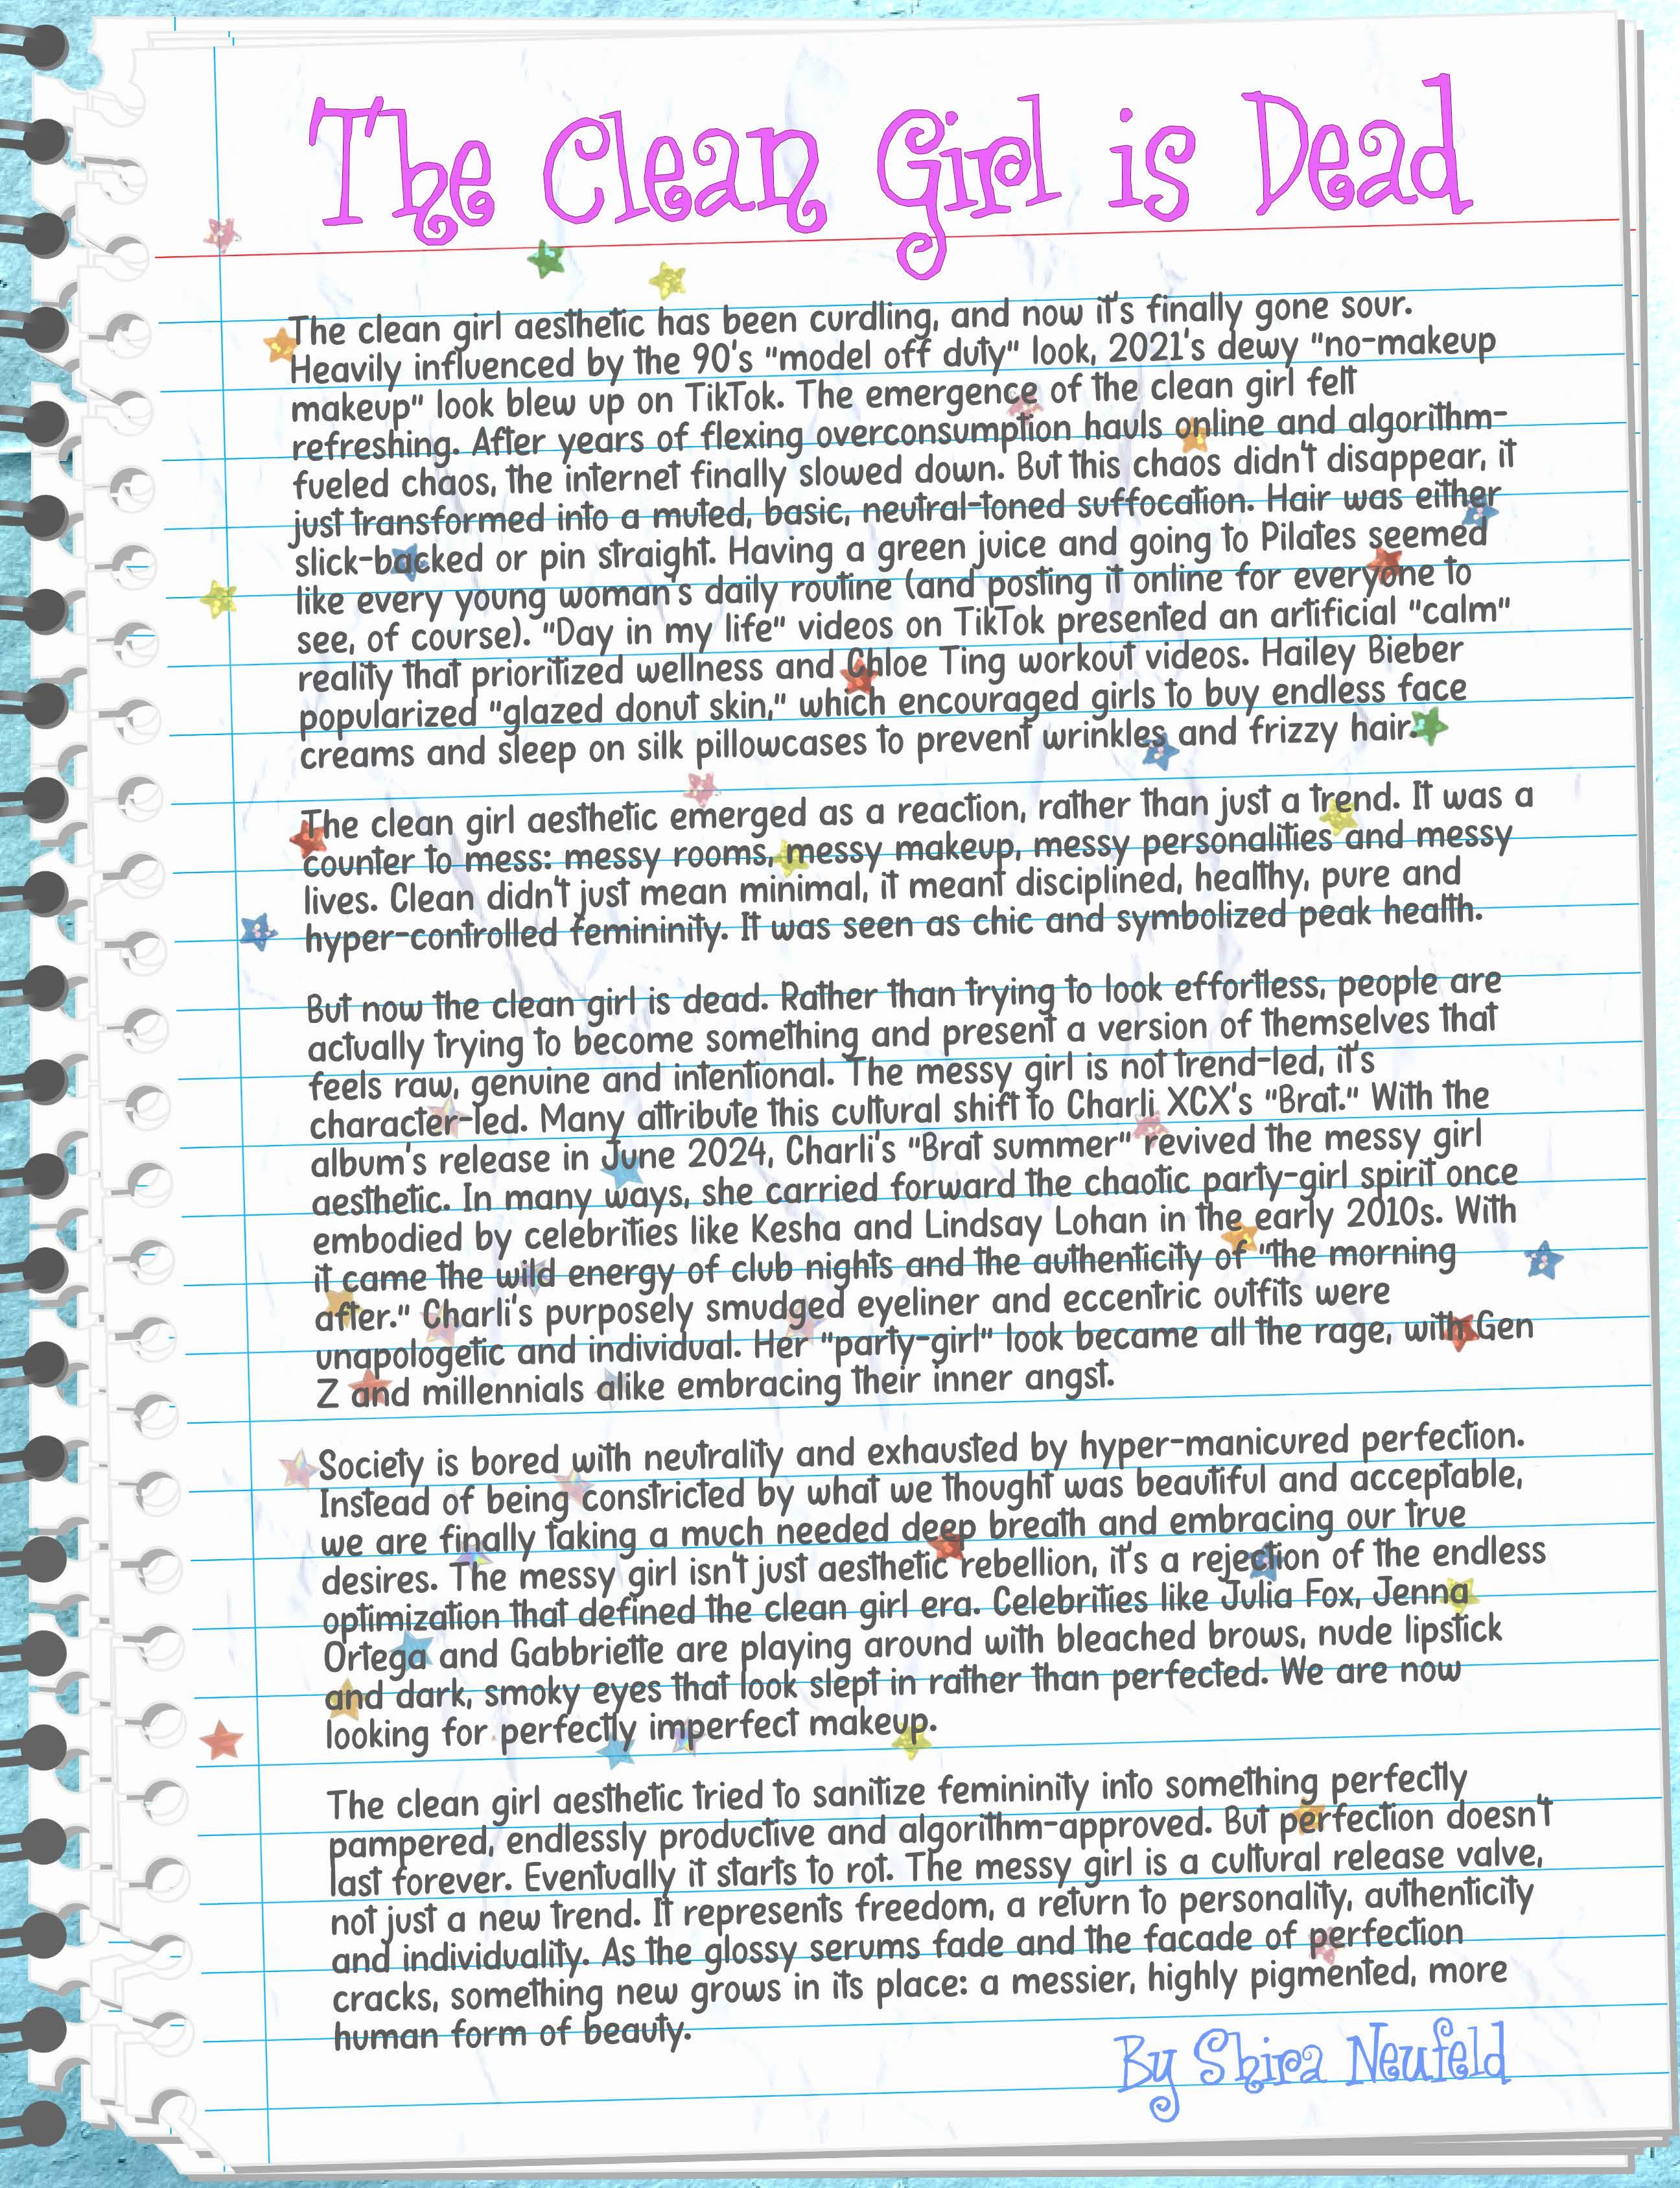 The Clean Girl is Dead
The clean girl aesthetic has been curdling, and now it's finally gone sour.
Heavily influenced by the 90's "model off duty" look, 2021's dewy "no-makeup
makeup" look blew up on TikTok. The emergence of the clean girl felt
refreshing. After years of flexing overconsumption hauls online and algorithm-
fueled chaos, the internet finally slowed down. But this chaos didn't disappear, it
just transformed into a muted, basic, neutral-toned suffocation. Hair was either
slick-backed or pin straight. Having a green juice and going to Pilates seemed
like every young woman's daily routine (and posting it online for everyone to
see, of course). "Day in my life" videos on TikTok presented an artificial "calm"
reality that prioritized wellness and Chloe Ting workout videos. Hailey Bieber
popularized "glazed donut skin," which encouraged girls to buy endless face
creams and sleep on silk pillowcases to prevent wrinkles and frizzy hair.
The clean girl aesthetic emerged as a reaction, rather than just a trend. It was a
counter to mess: messy rooms, messy makeup, messy personalities and messy
lives. Clean didn't just mean minimal, it meant disciplined, healthy, pure and
hyper-controlled femininity. It was seen as chic and symbolized peak health.
But now the clean girl is dead. Rather than trying to look effortless, people are
actually trying to become something and present a version of themselves that
feels raw, genuine and intentional. The messy girl is not trend-led, it's
character-led. Many attribute this cultural shift to Charli XCX's "Brat." With the
album's release in June 2024, Charli's "Brat summer" revived the messy girl
aesthetic. In many ways, she carried forward the chaotic party-girl spirit once
embodied by celebrities like Kesha and Lindsay Lohan in the early 2010s. With
it came the wild energy of club nights and the authenticity of "the morning
after." Charli's purposely smudged eyeliner and eccentric outfits were
unapologetic and individual. Her "party-girl" look became all the rage, with Gen
Z and millennials alike embracing their inner angst.
Society is bored with neutrality and exhausted by hyper-manicured perfection.
Instead of being constricted by what we thought was beautiful and acceptable,
we are finally taking a much needed deep breath and embracing our true
desires. The messy girl isn't just aesthetic rebellion, it's a rejection of the endless
optimization that defined the clean girl era. Celebrities like Julia Fox, Jenna
Ortega and Gabbriette are playing around with bleached brows, nude lipstick
and dark, smoky eyes that look slept in rather than perfected. We are now
looking for perfectly imperfect makeup.
The clean girl aesthetic tried to sanitize femininity into something perfectly
pampered, endlessly productive and algorithm-approved. But perfection doesn't
last forever. Eventually it starts to rot. The messy girl is a cultural release valve,
not just a new trend. It represents freedom, a return to personality, authenticity
and individuality. As the glossy serums fade and the facade of perfection
cracks, something new grows in its place: a messier, highly pigmented, more
human form of beauty.
By Shira Neufeld